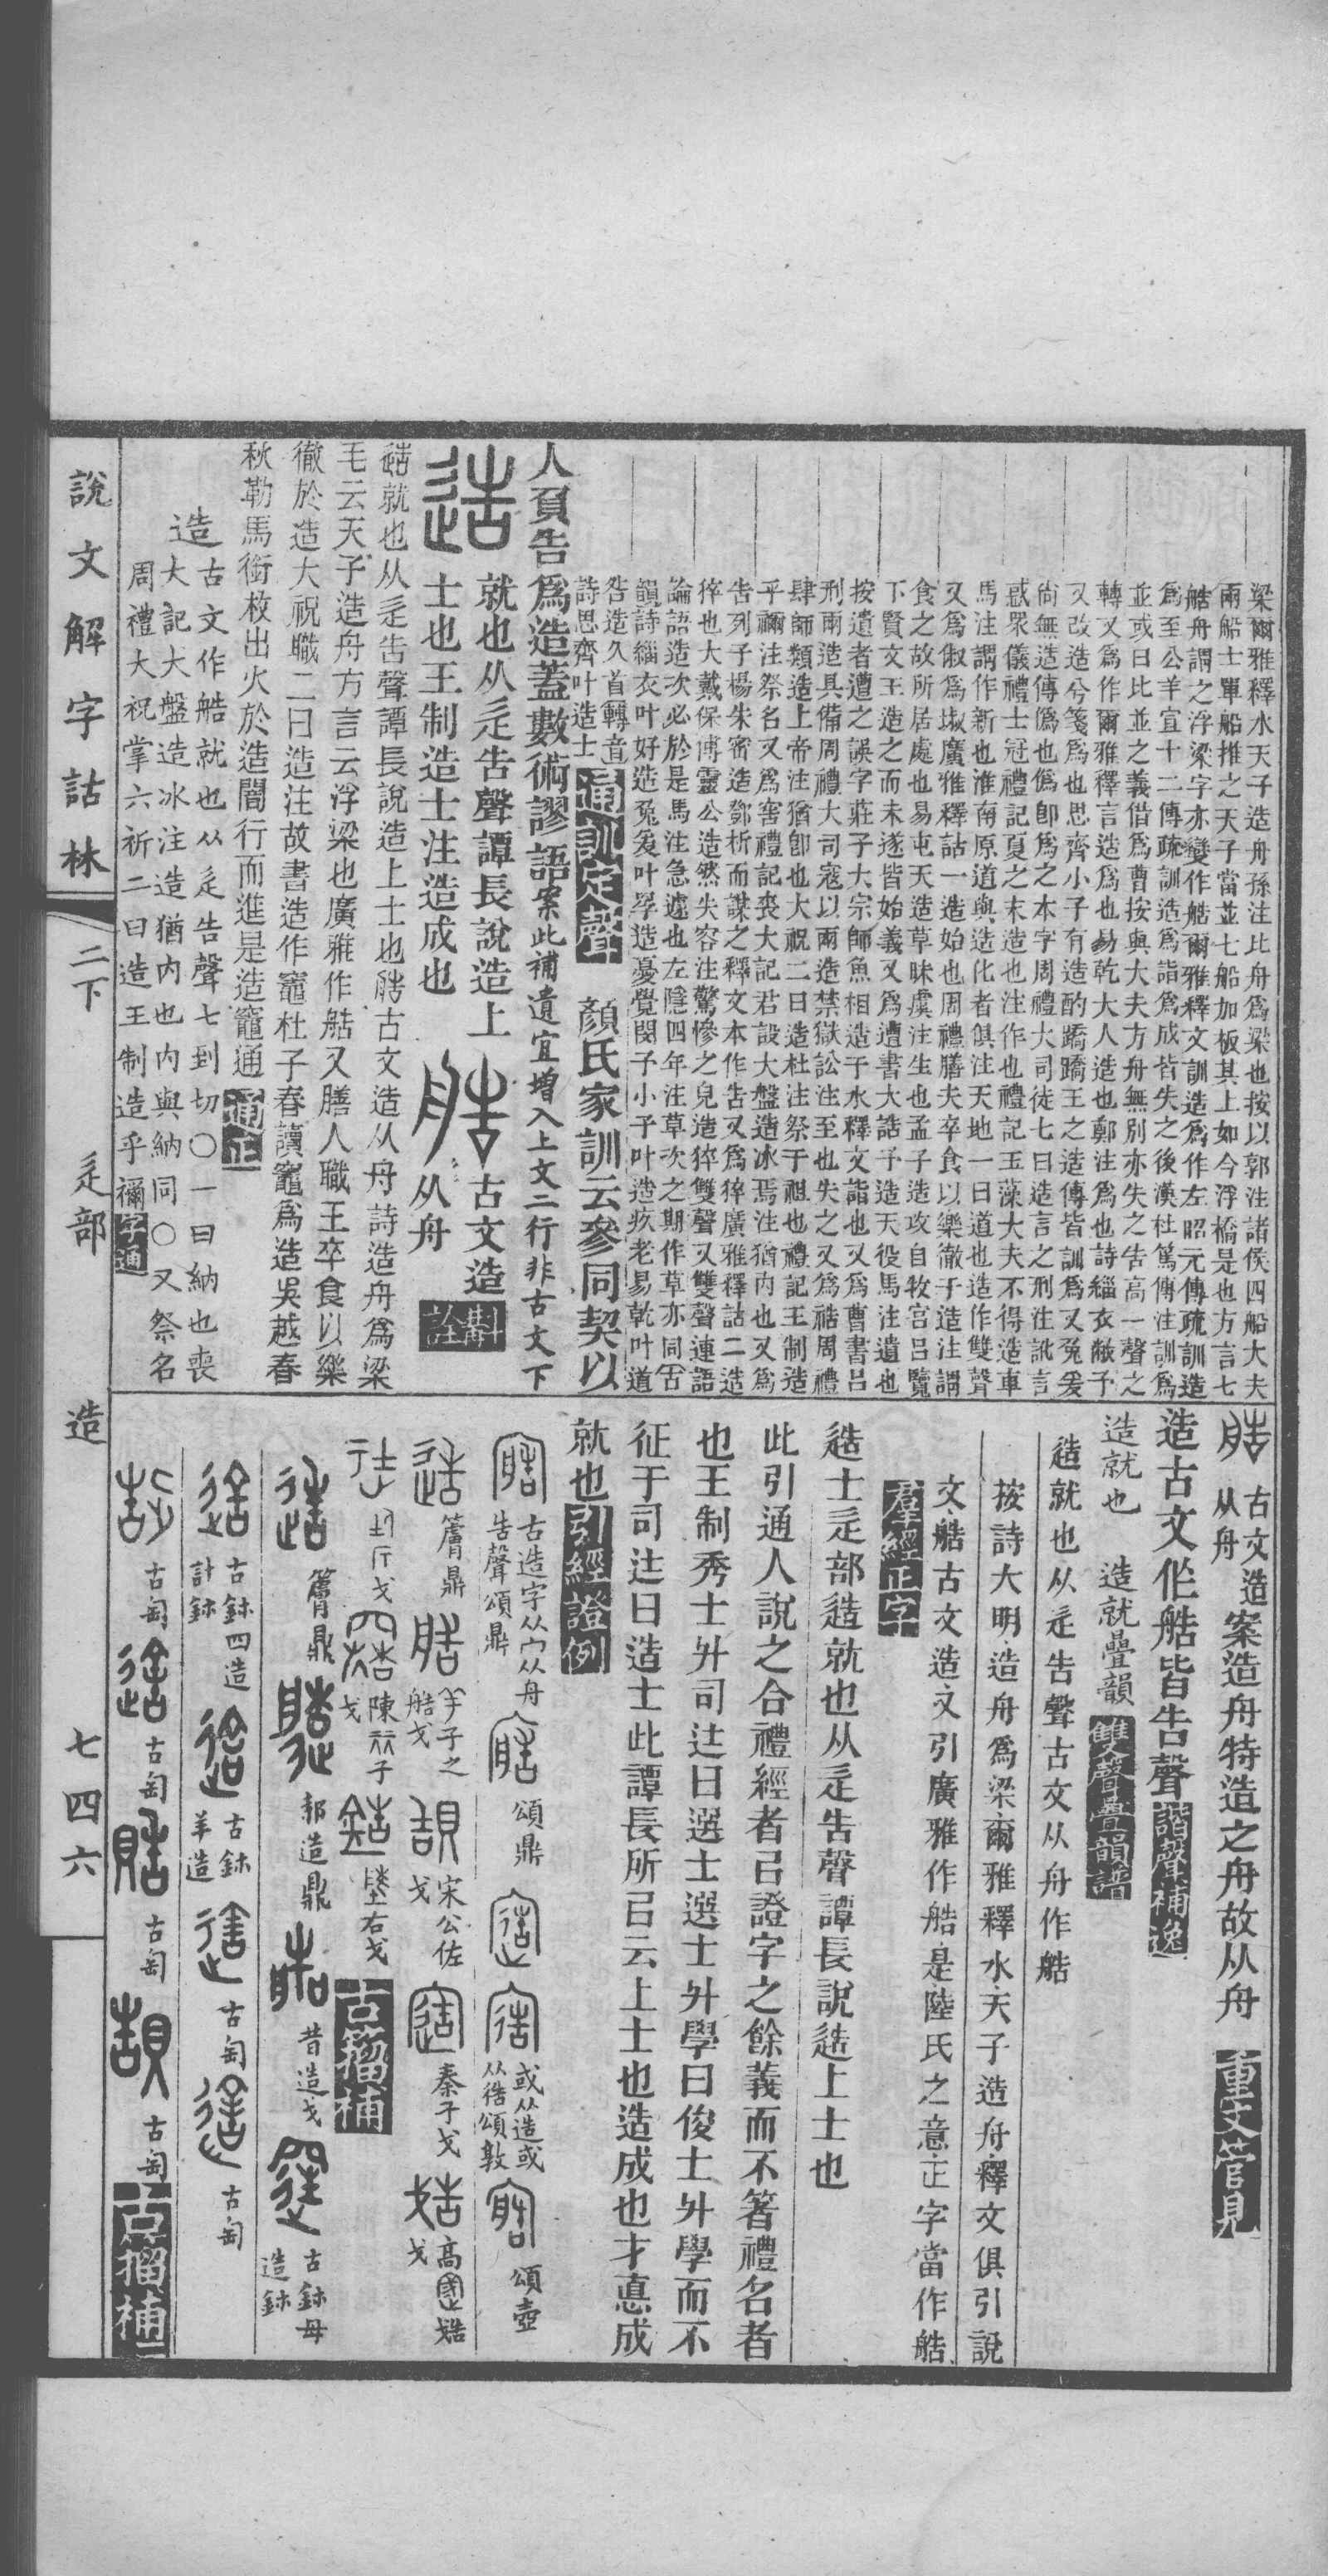 梁爾雅釋水天子造舟孫注比舟爲梁也按以郭注諸侯四船大夫
兩船士單船推之天子當並七船加板其上如今浮橋是也方言七
艁舟謂之浮梁字亦變作艁爾雅釋文訓造爲作左昭元傳疏訓造
爲至公羊宣十二傳疏訓造爲詣爲成皆失之後漢杜篤傳注訓爲
並或曰比並之義借爲曹按與大夫方舟無別亦失之告高一聲之
轉又爲作爾雅釋言造爲也易乾大人造也鄭注爲也詩緇衣敝予
又改造兮箋爲也思齊小子有造酌蹻蹻王之造傳皆訓爲又兔爰
尚無造傳僞也僞卽爲之本字周禮大司徒七曰造言之刑注訛言
惑眾儀禮士冠禮記夏之末造也注作也禮記玉藻大夫不得造車
馬注謂作新也淮南原道與造化者俱注天地一曰道也造作雙聲
又爲俶爲埱廣雅釋詁一造始也周禮膳夫卒食以樂徹于造注謂
食之故所居處也易屯天造草昧虞注生也孟子造攻自牧宮呂覽
下賢文王造之而未遂皆始義又爲遭書大誥予造天役馬注遺也
按遺者遭之誤字莊子大宗師魚相造于水釋文詣也又爲曹書呂
刑兩造具備周禮大司寇以兩造禁獄訟注至也失之又爲祰周禮
肆師類造上帝注猶卽也大祝二曰造杜注祭于祖也禮記王制造
乎禰注祭名又爲窖禮記喪大記君設大盤造冰焉注猶内也又爲
告列子楊朱密造鄧析而謀之釋文本作告又爲猝廣雅釋詁二造
猝也大戴保傅靈公造然失容注驚慘之皃造猝雙聲又雙聲連語
論語造次必於是馬注急遽也左隱四年注草次之期作草亦同古
韻詩緇衣叶好造兔爰叶罦造憂覺閔予小子叶造疚老易乾叶道
咎造久首轉音
詩思齊叶造士
通訓定聲
顏氏家訓云參同契以
人負告爲造蓋數術謬語案此補遺宜增入上文二行非古文下
造
就也从辵告聲譚長說造上
士也王制造士注造成也
艁
古文造
从舟
斠詮
造就也从辵告聲譚長說造上士也艁古文造从舟詩造舟爲梁
毛云天子造舟方言云浮梁也廣雅作艁又膳人職王卒食以樂
徹於造大祝職二曰造注故書造作竈杜子春讀竈爲造吳越春
秋勒馬銜枚出火於造闇行而進是造竈通
通正
造
古文作艁就也从辵告聲七到切〇一曰納也喪
大記大盤造冰注造猶内也内與納同〇又祭名
周禮大祝掌六祈二曰造王制造乎禰
字通
說文解字詁林
二下
辵部
造
七四六
艁
古文造
从舟
案造舟特造之舟故从舟
重文管見
造古文作艁皆告聲
諧聲補逸
造就也
造就疊韻
雙聲疊韻譜
造就也从辵告聲古文从舟作艁
按詩大明造舟爲梁爾雅釋水天子造舟釋文俱引說
文艁古文造又引廣雅作艁是陸氏之意正字當作艁
羣經正字
造士辵部造就也从辵告聲譚長說造上士也
此引通人說之合禮經者㠯證字之餘義而不箸禮名者
也王制秀士升司徒曰選士選士升學曰俊士升學而不
征于司徒曰造士此譚長所㠯云上士也造成也才悳成
就也
引經證例
古造字从宀从舟
告聲頌鼎
頌鼎
或从造或
从䢒頌敦
頌壺
簷鼎
羊子之
艁戈
宋公佐
戈
秦子戈
高國
戈
陳子
戈
右戈
古籀補
簷鼎
邾造鼎
昔造戈
古鉨母
造鉨
古鉨四造
計鉨
古鉨
羊造
古匋
古匋
古匋
古匋
古匋
古匋
古籀補